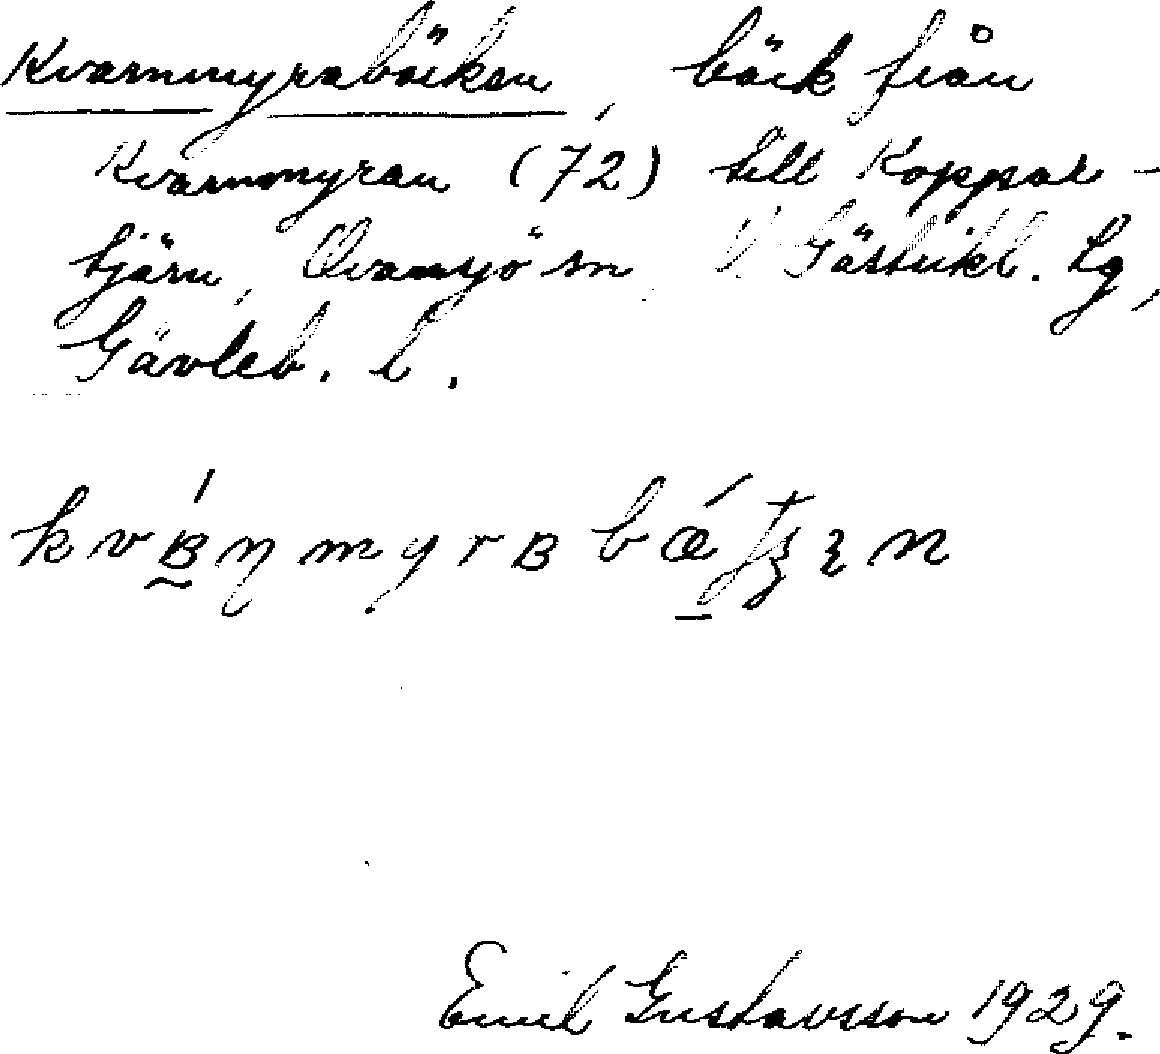 Kvarnmyrabäcken, bäck från
Kvarnmyran (72) till Koppar-
tjärn, Ovansjö sn V. Gästrikl. Lg,
Gävleb. l.
Emil Gustavsson 1929.